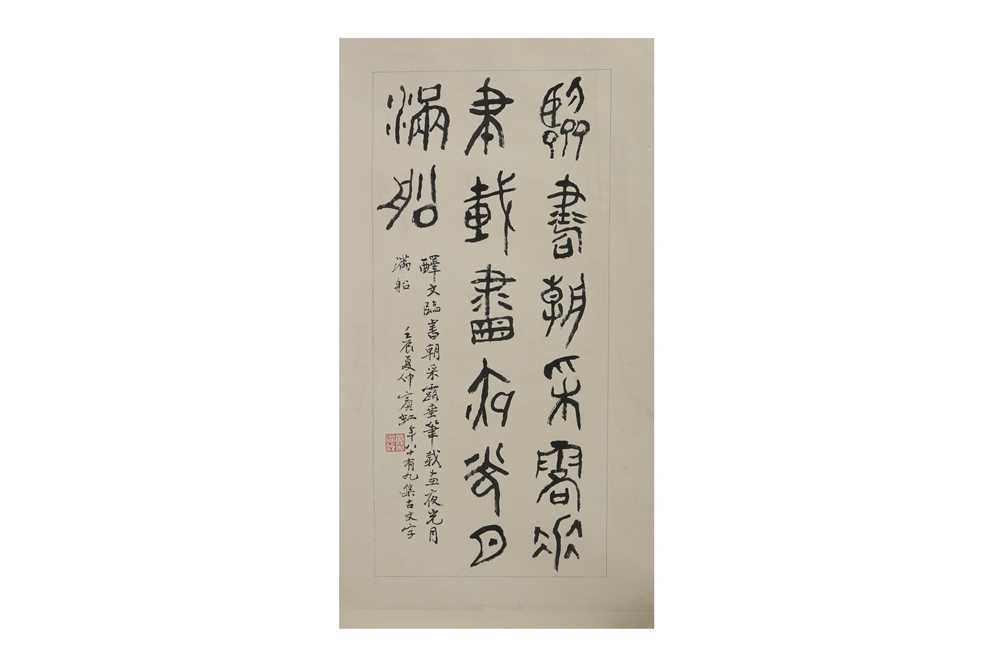 臨書朝采露垂
筆載畫夜光月
滿船
釋文臨書朝采露垂筆載畫夜光月
滿船
壬辰夏仲賓虹年八十有九集古文字